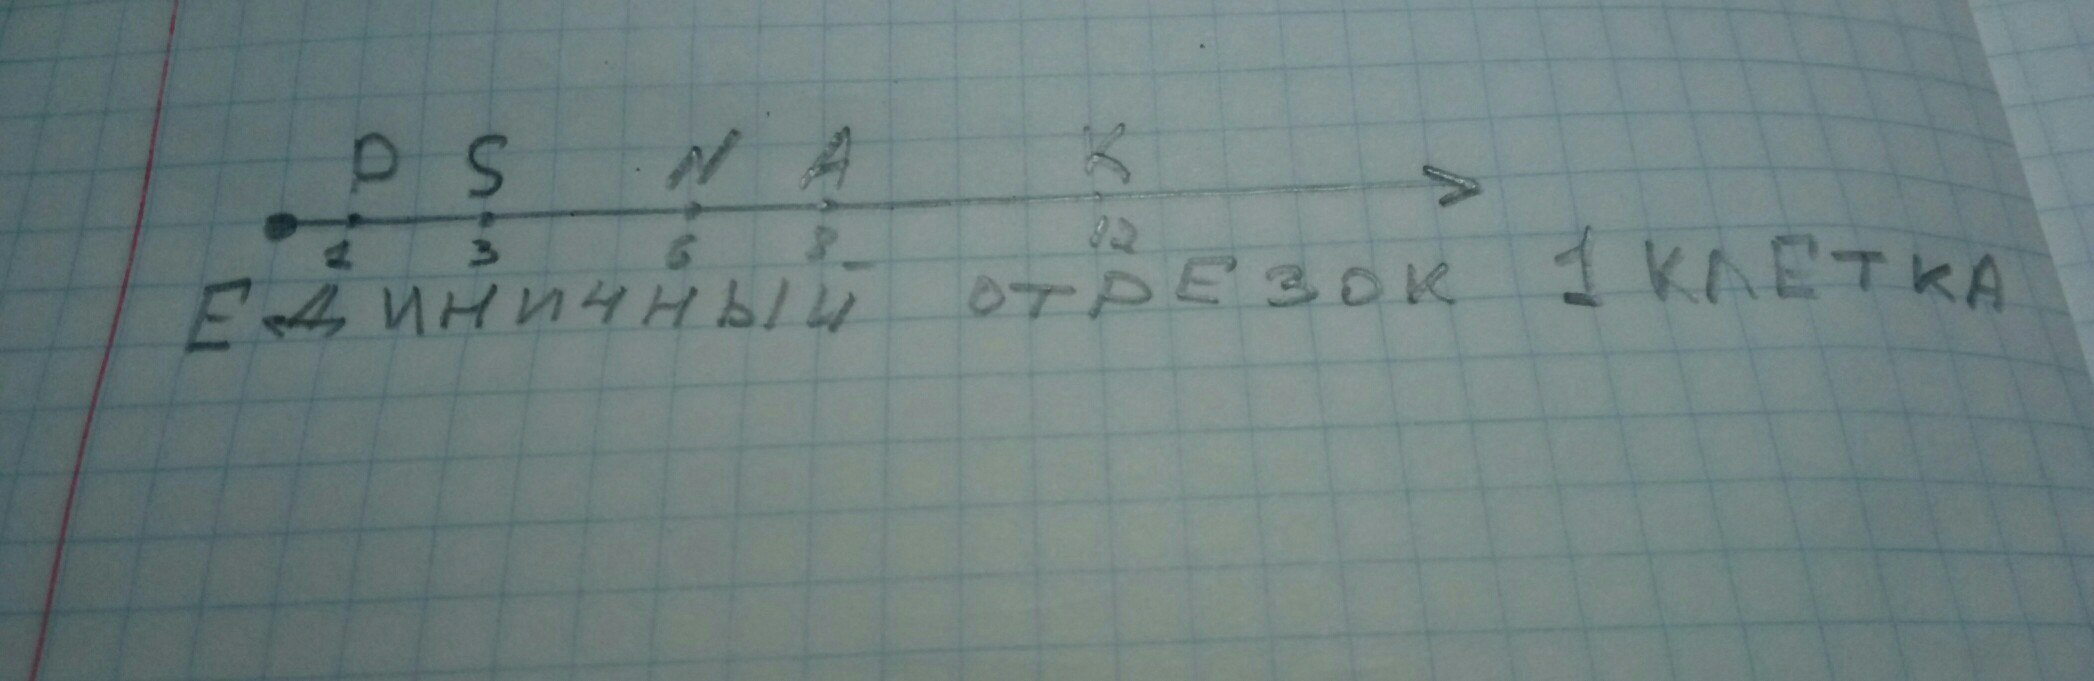 P S N A K
1 3 6 8 12
ЕДИНИЧНЫЙ ОТРЕЗОК 1 КЛЕТКА